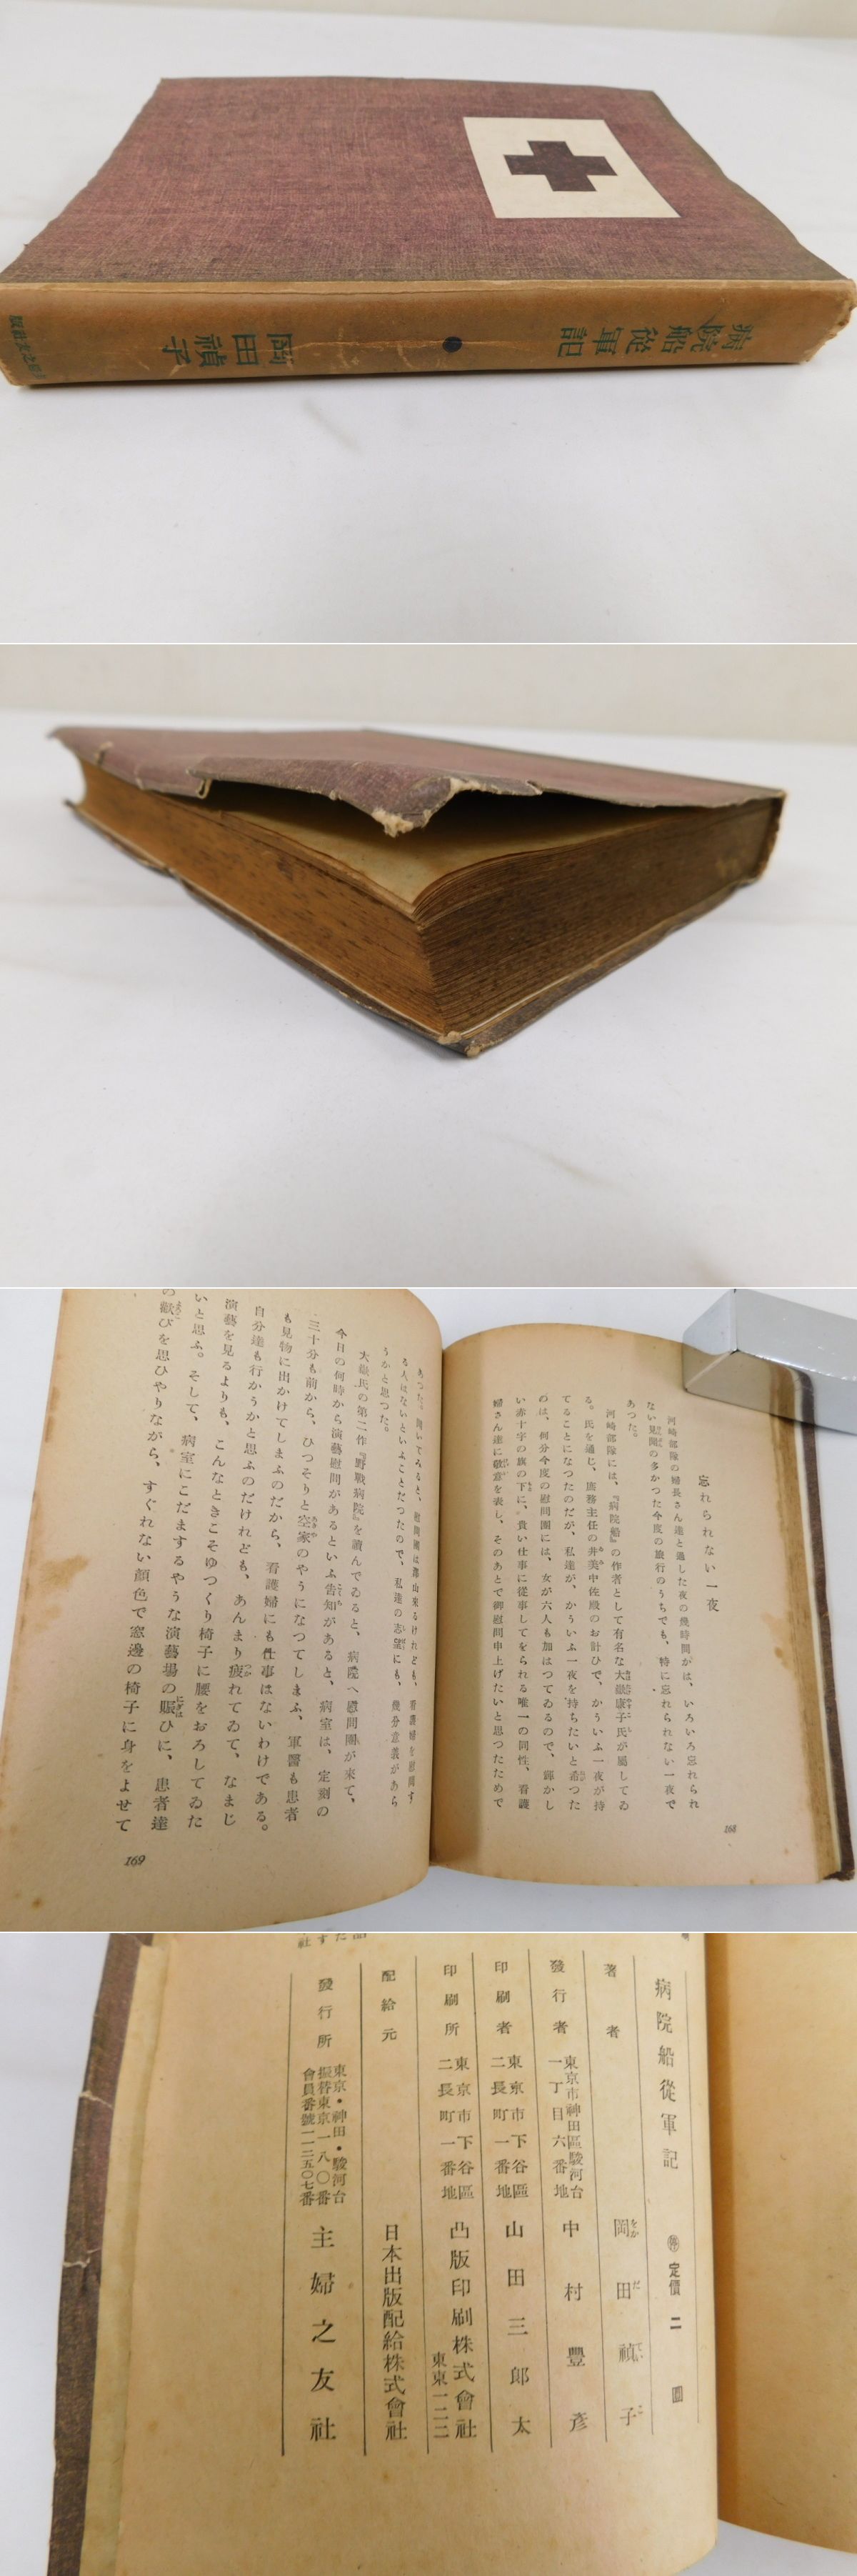 病院船從軍記
岡田禎子
主婦之友社版
忘れられない一夜
河崎部隊の婦長さん達と過した夜の幾時間かは、いろいろ忘れられ
ない見聞の多かつた今度の旅行のうちでも、特に忘れられない一夜で
あつた。
河崎部隊には、『病院船』の作者として有名な大嶽康子氏が屬してゐ
る。氏を通じ、庶務主任の井美中佐殿のお計ひで、かういふ一夜が持
てることになつたのだが、私達が、かういふ一夜を持ちたいと希つた
のは、何分今度の慰問團には、女が六人も加はつてゐるので、輝かし
い赤十字の旗の下に、貴い仕事に從事してをられる唯一の同性、看護
婦さん達に敬意を表し、そのあとで御慰問申上げたいと思つたためで
168
あつた。聞いてみると、慰問團は澤山來るけれども、看護婦を慰問す
る人はないといふことだつたので、私達の志望にも、幾分意義があら
うかと思つた。
大嶽氏の第二作『野戰病院』を讀んでゐると、病院へ慰問團が來て、
今日の何時から演藝慰問があるといふ告知があると、病室は、定刻の
三十分も前から、ひつそりと空家のやうになつてしまふ、軍醫も患者
も見物に出かけてしまふのだから、看護婦にも仕事はないわけである。
自分達も行かうかと思ふのだけれども、あんまり疲れてゐて、なまじ
演藝を見るよりも、こんなときこそゆつくり椅子に腰をおろしてゐた
いと思ふ。そして、病室にこだまするやうな演藝場の賑ひに、患者達
の歡びを思ひやりながら、すぐれない顏色で窓邊の椅子に身をよせて
169
病院船從軍記 定價二圓
著者 岡田禎子
發行者 東京市神田區駿河台一丁目六番地 中村豐彥
印刷者 東京市下谷區二長町一番地 山田三郎太
印刷所 東京市下谷區二長町一番地 凸版印刷株式會社 東東一二二
配給元 日本出版配給株式會社
發行所 東京・神田・駿河台 振替東京一八〇番 會員番號一一二五〇七番 主婦之友社